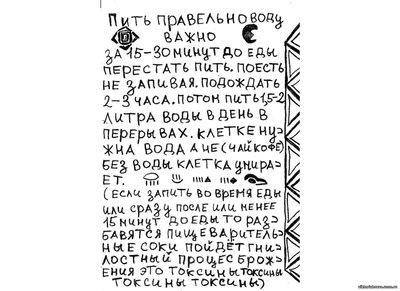 Пить правельно воду
важно
за 15-30 минут до еды
перестать пить. поесть
не запивая. подождать
2-3 часа. потом пить 1,5-2
литра воды в день в
перерывах. клетке ну-
жна вода а не (чай кофе)
без воды клетка умира-
ет.
(если запить во время еды
или сразу после или менее
15 минут до еды то раз-
бавятся пищеваритель-
ные соки пойдёт гни-
лостный процес брож-
ения это токсины токсины
токсины токсины)